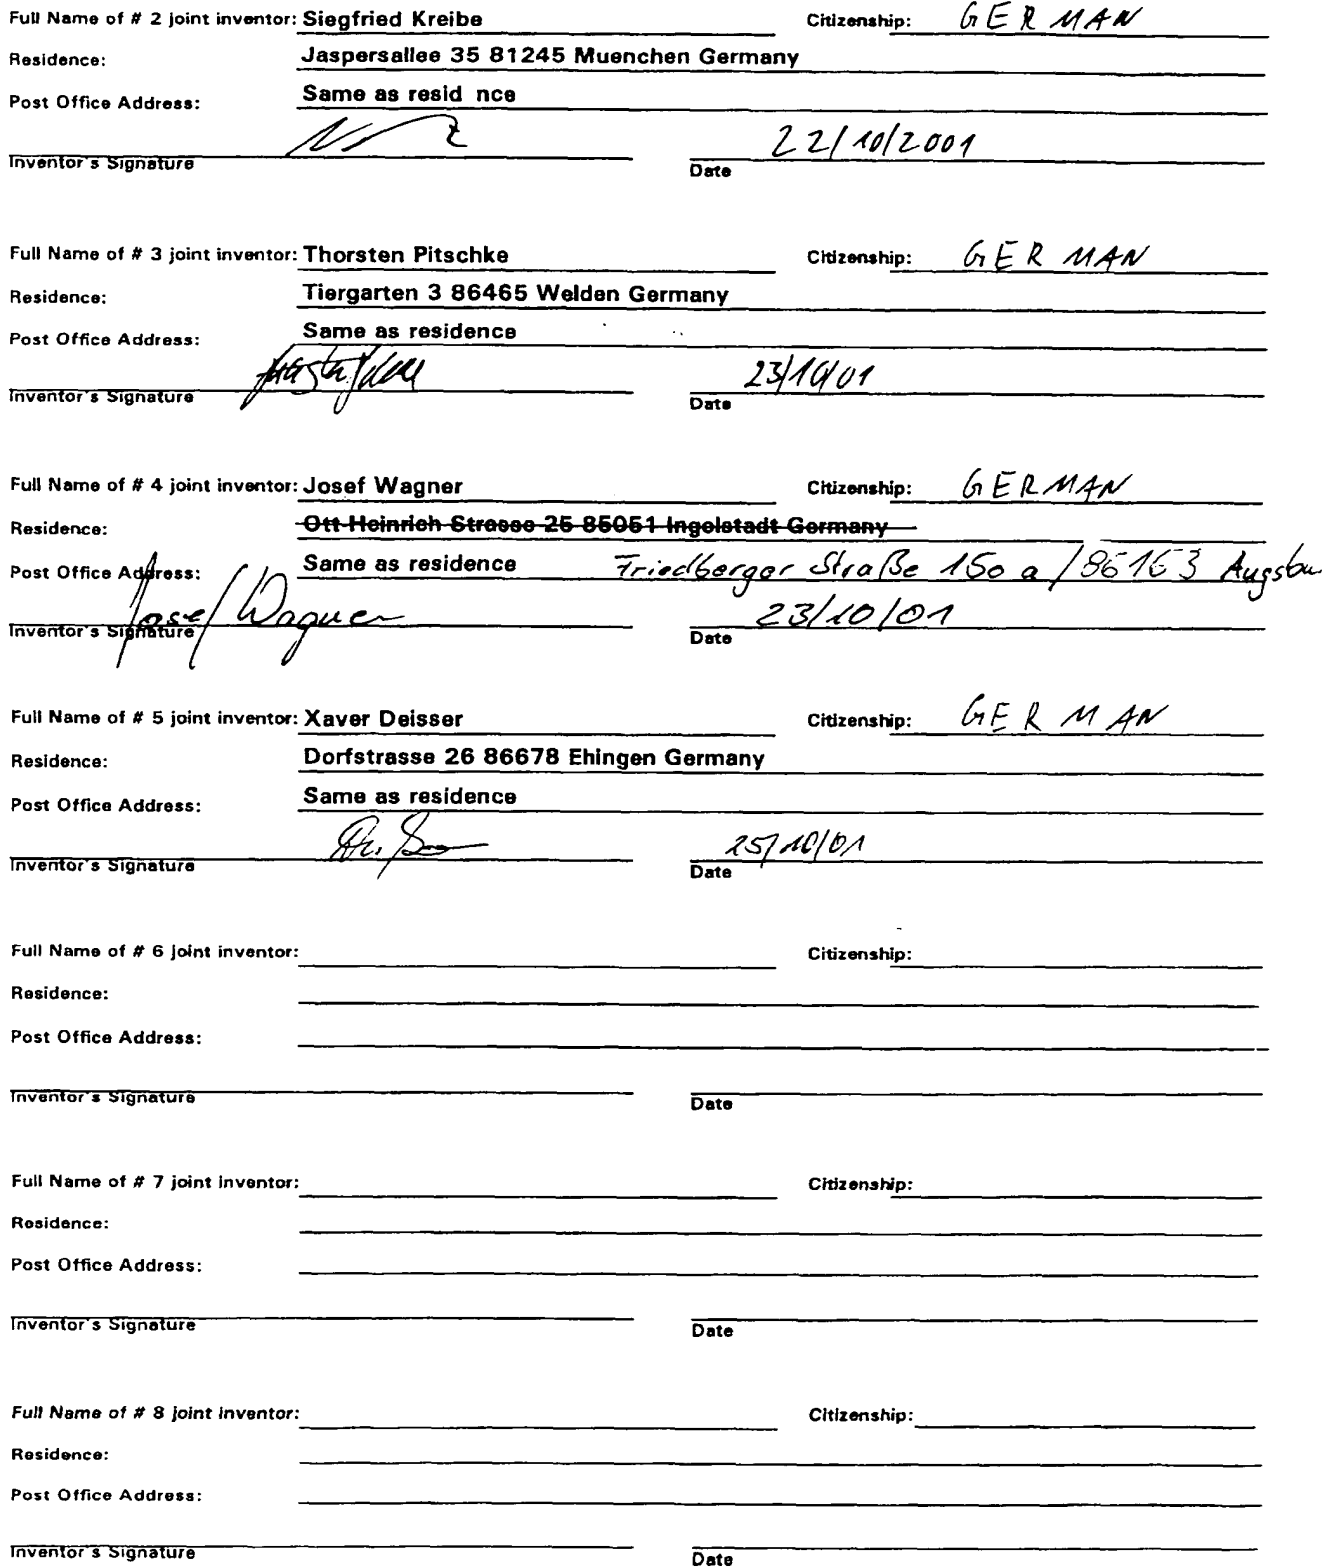 Full Name of # 2 joint inventor: Siegfried Kreibe Citizenship: GERMAN
Residence: Jaspersallee 35 81245 Muenchen Germany
Post Office Address: Same as resid nce
22/10/2001
Inventor's Signature Date
Full Name of # 3 joint inventor: Thorsten Pitschke Citizenship: GERMAN
Residence: Tiergarten 3 86465 Welden Germany
Post Office Address: Same as residence
23/10/01
Inventor's Signature Date
Full Name of # 4 joint inventor: Josef Wagner Citizenship: GERMAN
Residence: Ott-Heinrich-Strasse 25 85051 Ingolstadt Germany
Post Office Address: Same as residence Friedberger Straße 150 a / 86163 Augsbu
Josef Wagner 23/10/01
Inventor's Signature Date
Full Name of # 5 joint inventor: Xaver Deisser Citizenship: GERMAN
Residence: Dorfstrasse 26 86678 Ehingen Germany
Post Office Address: Same as residence
25/10/01
Inventor's Signature Date
Full Name of # 6 joint inventor: Citizenship:
Residence:
Post Office Address:
Inventor's Signature Date
Full Name of # 7 joint inventor: Citizenship:
Residence:
Post Office Address:
Inventor's Signature Date
Full Name of # 8 joint inventor: Citizenship:
Residence:
Post Office Address:
Inventor's Signature Date